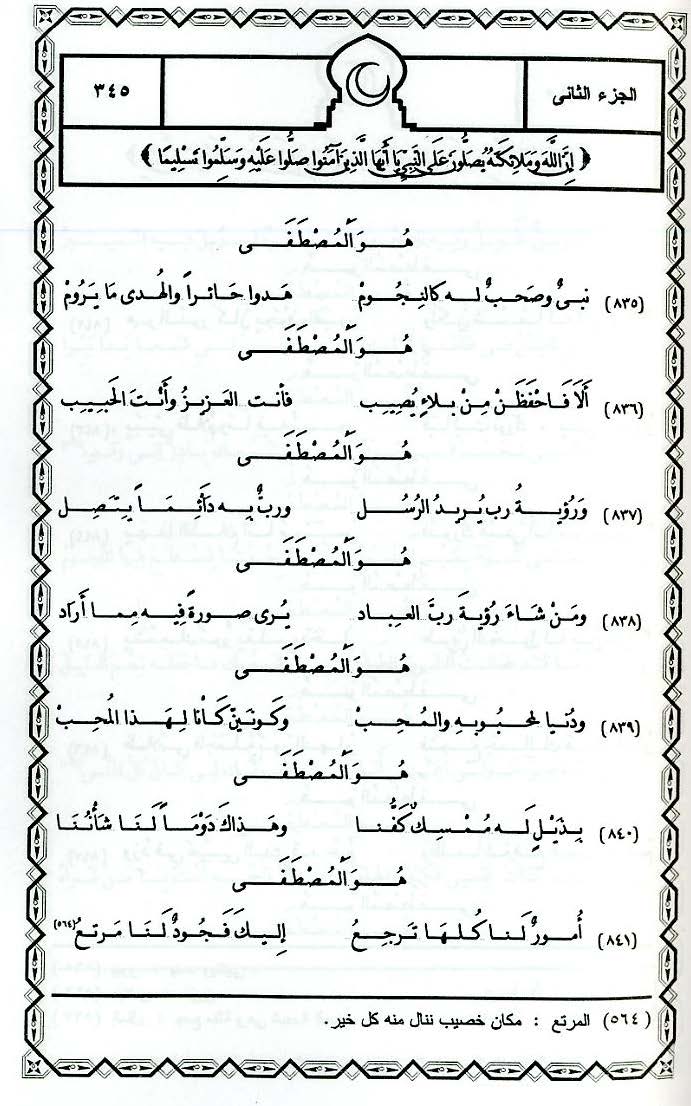 الجزء الثانى
٣٤٥
﴿ إِنَّ اللَّهَ وَمَلَائِكَتَهُ يُصَلُّونَ عَلَى النَّبِيِّ يَا أَيُّهَا الَّذِينَ آمَنُوا صَلُّوا عَلَيْهِ وَسَلِّمُوا تَسْلِيمًا ﴾
هُـوَ الْمُصْطَفَـى
(٨٣٥) نبىٌ وصَحَبٌ لـه كالنِجُـومْ هَدوا حَائـراً والهُدى مَا يَرُومْ
هُـوَ الْمُصْطَفَـى
(٨٣٦) أَلَا فَاحْفَظَنْ مِنْ بـلاءٍ يُصِيب فأنت العَـزِيزُ وأَنْتَ الحَبِـيب
هُـوَ الْمُصْطَفَـى
(٨٣٧) وَرُؤيـةُ رب يُـرِيدُ الرُسُـل وربٌ بِـه دَائمًا يتَصِل
هُـوَ الْمُصْطَفَـى
(٨٣٨) ومَنْ شَاءَ رُؤيةَ ربَّ العباد يُرى صورةً فِيه مما أَرَاد
هُـوَ الْمُصْطَفَـى
(٨٣٩) ودُنيا لمحبُوبهِ والمُحِبْ وكَونَينَ كَانَا لِهَذا المُحِبْ
هُـوَ الْمُصْطَفَـى
(٨٤٠) بِذَيْلٍ لَه مُمْسِكٌ كَفُّنا وهَذاكَ دَوْمَاً لَنَا شَأْنُنَا
هُـوَ الْمُصْطَفَـى
(٨٤١) أُمورٌ لَنا كُلهَا تَرجِعُ إليكَ فَجُودٌ لَنَا مَرتعُ (٥٦٤)
(٥٦٤) المرتع : مكان خصيب ننال منه كل خير.